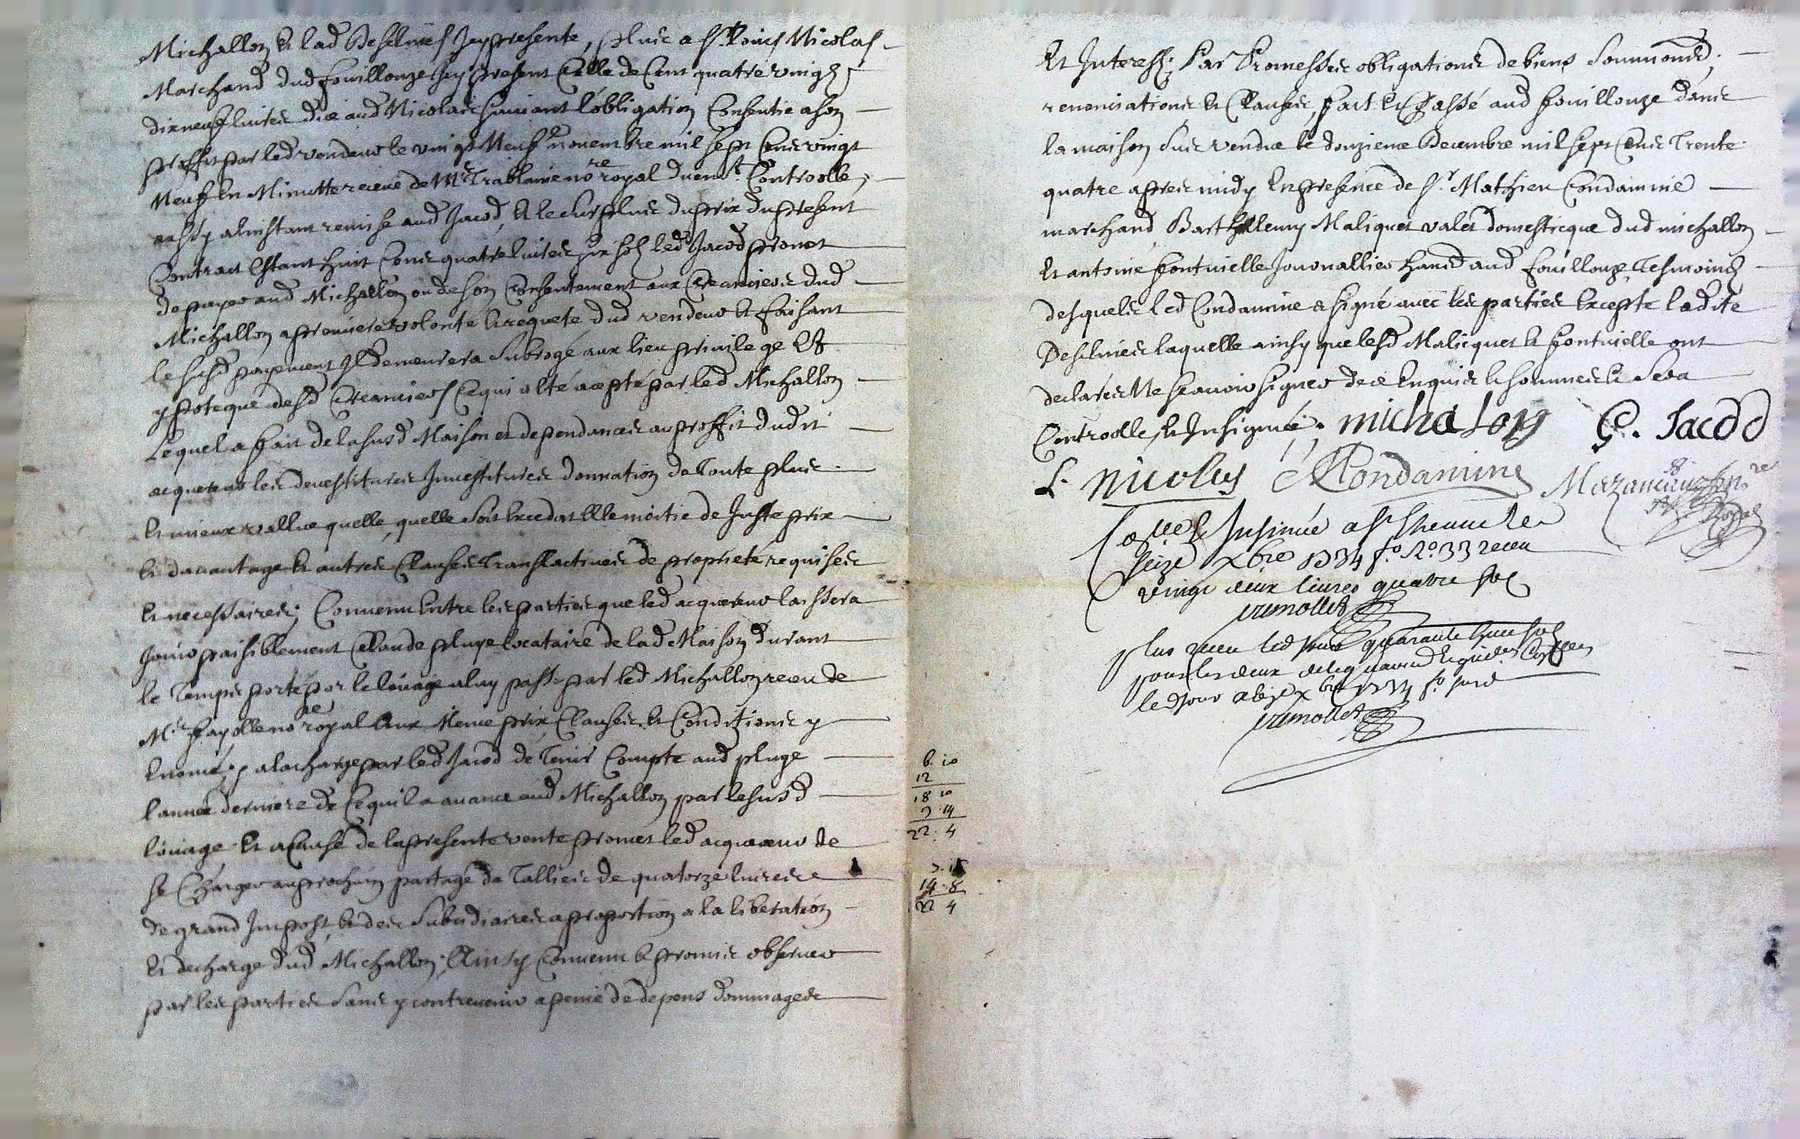 Michallon & lad Deshuies Icy presente, plus a Sr Louis Nicolas
Marchand dud fouillouze Icy present Celle de Cent quatre vingt
dixneuf livres düe aud Nicolas suivant lobligation Consentie a son
proffit par led vendeur le vingt Neuf novembre mil sept Cens vingt
Neuf En Minutte receue de Me Trablaine nore royal duemt Controlle,
aussy alinstant remise aud Jacod, & le surplus du prix du present
Contract Estant huit Cens quatre livres six sols led Jacod promet
de payer aud Michallon ou de son Consentement aux Creanciers dud
Michallon a premiere volonte & requete dud vendeur & faisant
le susd payement Il demeurera subrogé aux lieu privilege &
ypoteque desd Creanciers Ce qui a Eté accepté par led Michallon
Lequel a fait de la susd Maison et dependances au proffit dudit
acquereur les devestitures Investitures donnation de Toute plus
& mieux vallue quelle quelle soit Exedat Elle moitie de Juste prix
& davantage & autres Clauses Translactives de proprieté requises
& necessaires; Convenu Entre les parties que led acquereur laissera
Jouir paisiblement Claude pluge locataire de lad Maison durant
le Temps porté par le loüage a luy passé par led Michallon receu de
Me fayolle nore royal Aux Meme prix Clauses & Conditions y
Enoncé; a la charge par led Jacod de Tenir Compte aud pluge
lannee derniere de Ce quil a avancé aud Michallon par le susd
loüage. Et a Cause de la presente vente promet led acquereur de
se Charger au prochain partage de Tallies de quatorze livres
de grand Impost & des subsidiaires a proportion a la liberation
& decharge dud Michallon; Ainsy Convenu & promis observer
par les parties sans y contrevenir a peine de depens dommages
6. 10
12
18 10
3 14
22. 4
14. 8
22 4
Et Interest; Par Promesses obligations de biens soumissions,
renonciations & Clauses, fait & Passé aud fouillouze dans
la maison sus vendue le douzieme Decembre mil sept Cens Trente
quatre apres midy En presence de Sr Mathieu Condamine
marchand Barthelemy Maliquet valet domesticque dud michallon
Et antoine fontvielle Journallier hansd aud fouillouze Tesmoins
desquels led Condamine a signé avec les parties Excepte ladite
Deshuies laquelle ainsy que lesd Malicquet & fontvielle ont
declarés Ne scavoir signer de ce Enquis & sommes & sera
Controolle & Insignué. michalon C. Jacod
L. nicolas M Condamine
Colle & Insinué a St Etienne le
seize xbre 1734 fo No 33 receu
vingt deux livres quatre sols
plus receu led jour quarante huit sols
led jour xbre 1734 fo